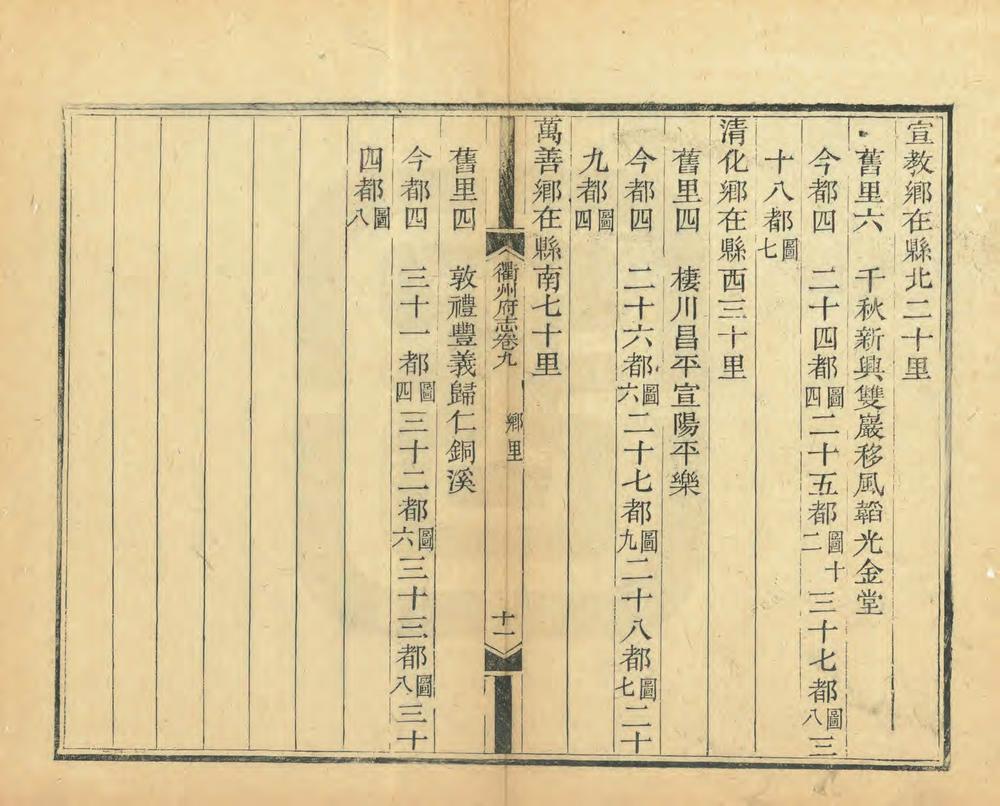 宣教鄉在縣北二十里
舊里六　千秋新興雙巖移風韜光金堂
今都四　二十四都圖四二十五都圖十二三十七都圖八三
十八都圖七
清化鄉在縣西三十里
舊里四　棲川昌平宣陽平樂
今都四　二十六都圖六二十七都圖九二十八都圖七二十
九都圖四
萬善鄉在縣南七十里
衢州府志卷九　鄉里　十一
舊里四　敦禮豐義歸仁銅溪
今都四　三十一都圖四三十二都圖六三十三都圖八三十
四都圖八